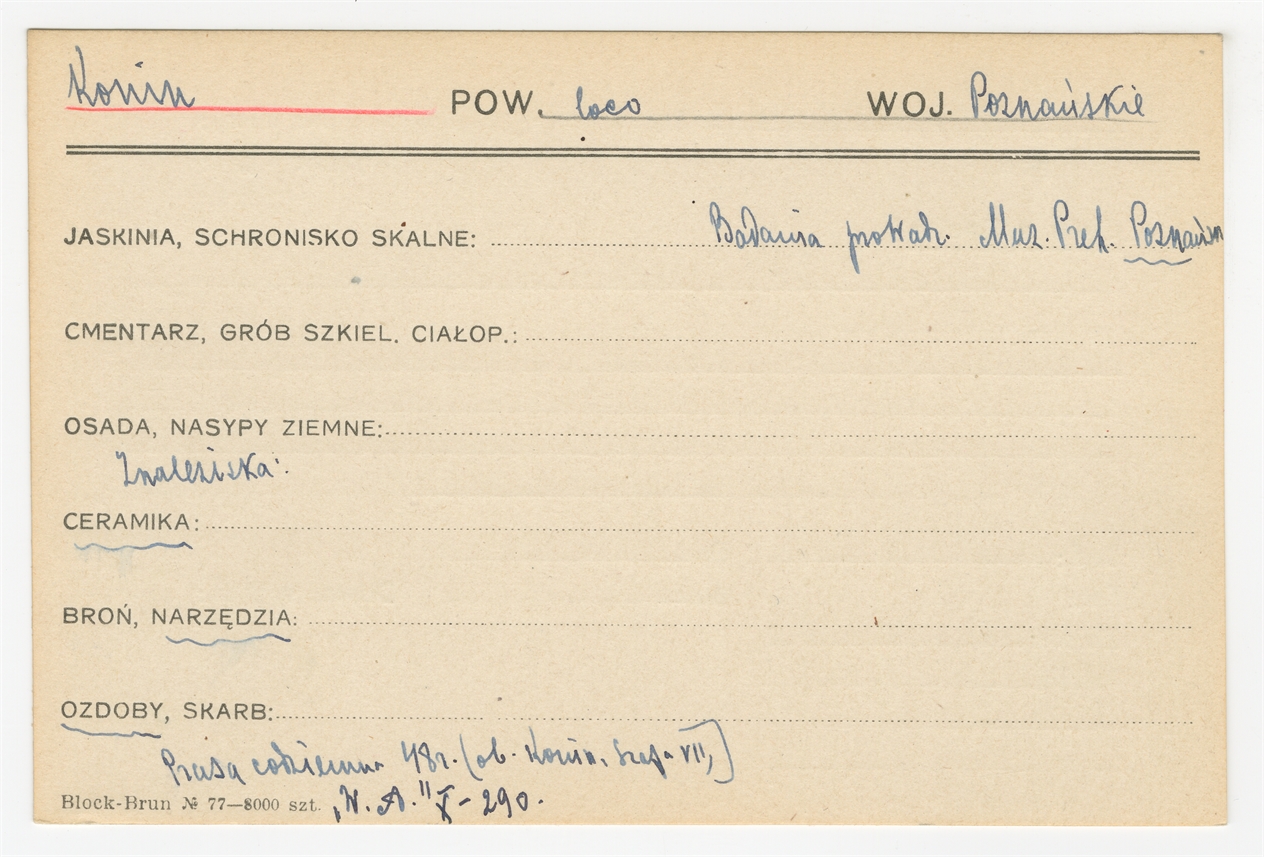 Konin POW. loco WOJ. Poznańskie
JASKINIA, SCHRONISKO SKALNE: Badania prowadz. Muz. Preh. Poznań
CMENTARZ, GRÓB SZKIEL. CIAŁOP.:
OSADA, NASYPY ZIEMNE:
Znaleziska:
CERAMIKA:
BROŃ, NARZĘDZIA:
OZDOBY, SKARB:
Prasa codzienna 48 r. (ob. Konin, VII,)
Block-Brun № 77—8000 szt. „W. A." X - 290.